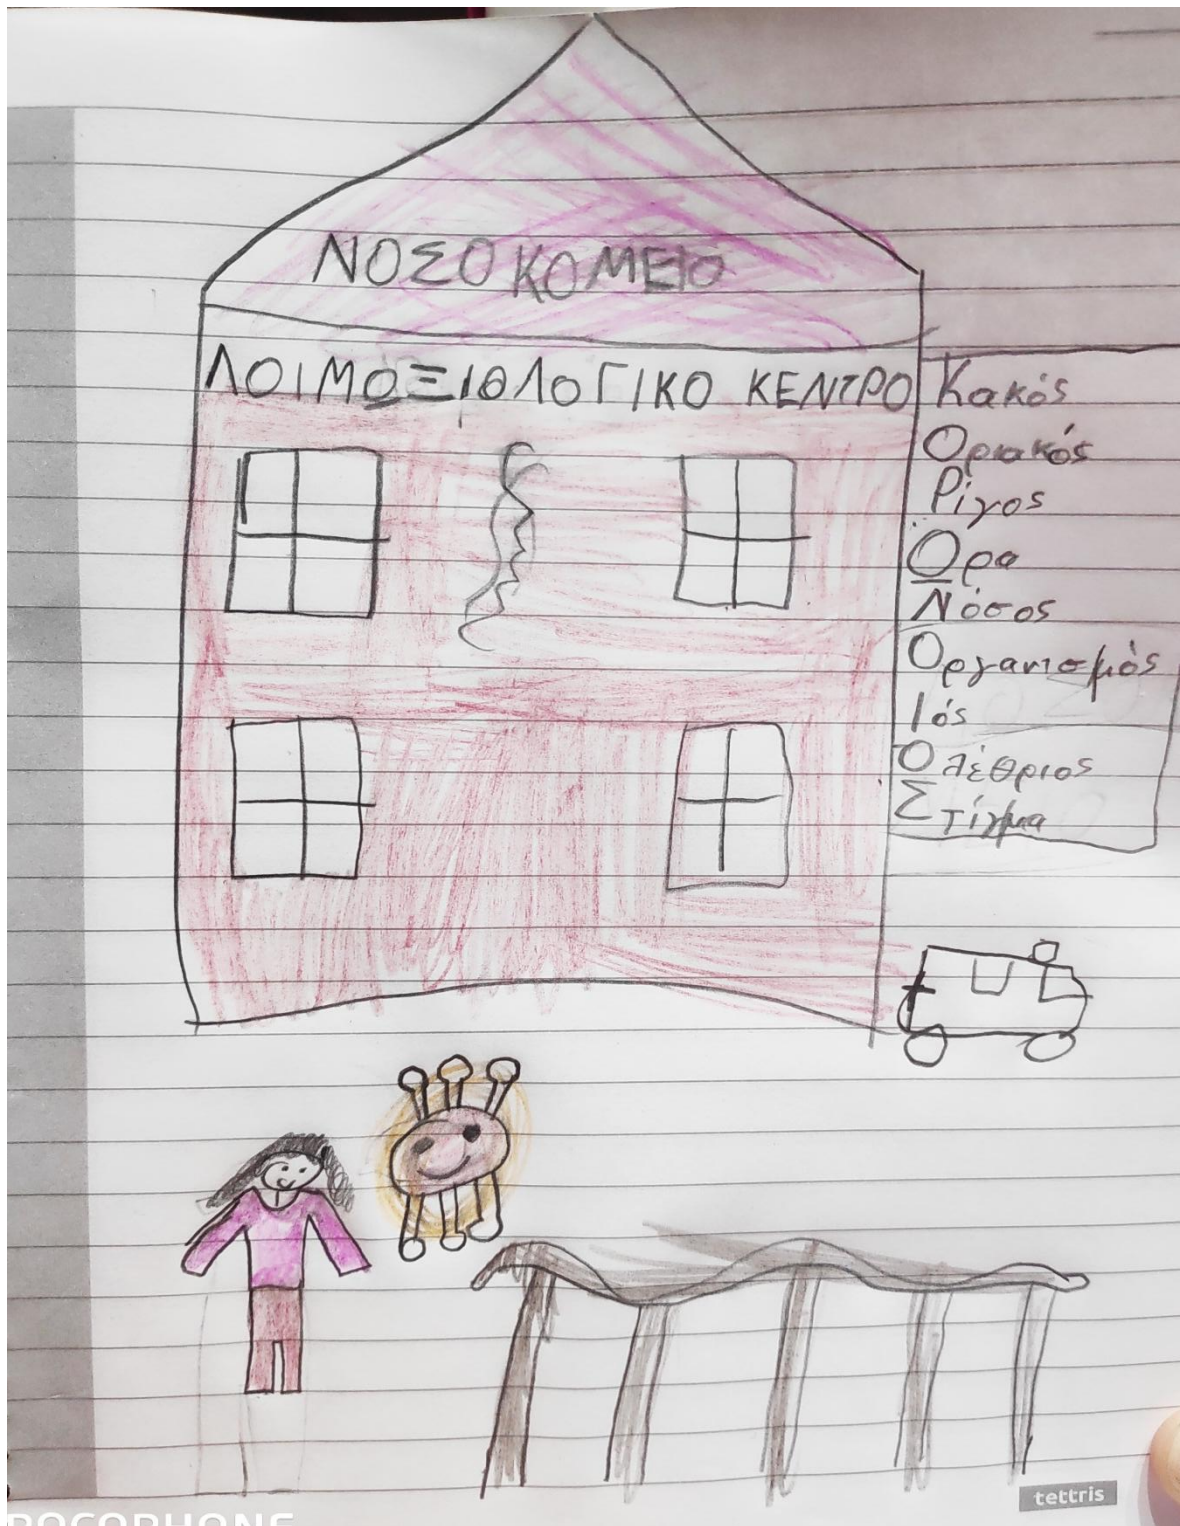 ΝΟΣΟΚΟΜΕΙΟ
ΛΟΙΜΩΞΙΟΛΟΓΙΚΟ ΚΕΝΤΡΟ
Κακός
Οριακός
Ρίγος
Ωρα
Νόσος
Οργανισμός
Ιός
Ολέθριος
Στίγμα
tettris
POCOPHONE